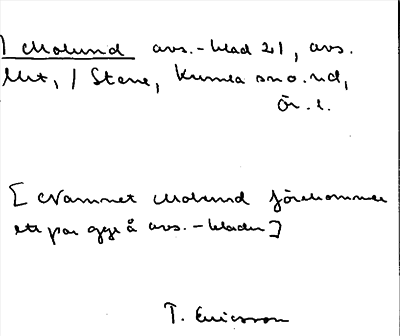 ] Molund avs.-blad 21, avs.
Mrt, / Stene, Kumla sn o. hd,
Ör. l.
[Namnet Molund förekommer
ett par ggr å avs.-bladen]
T. Ericsson